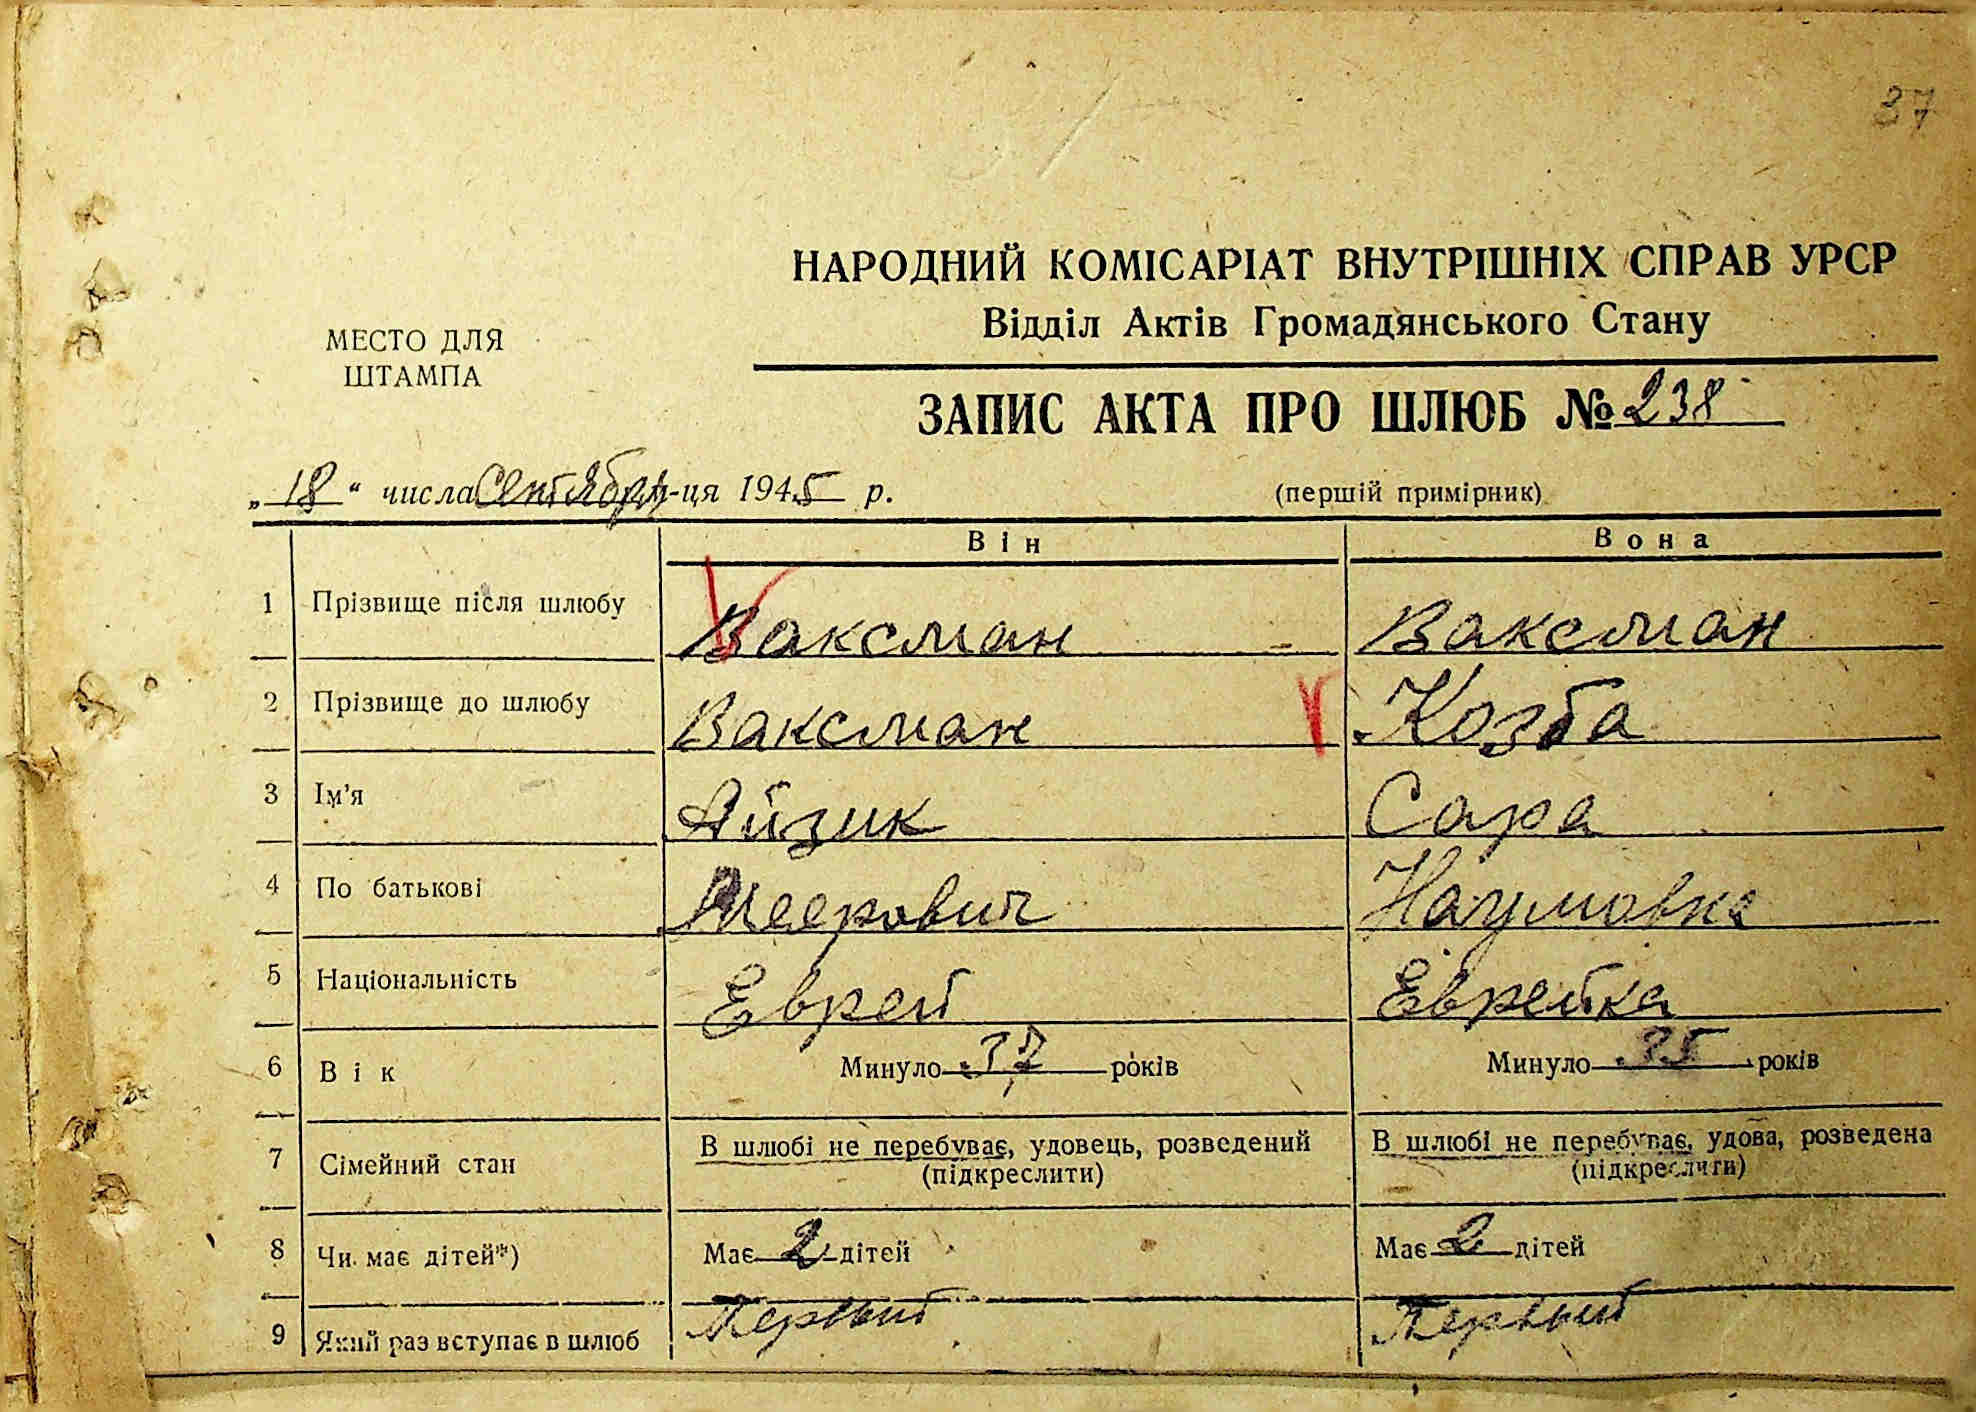 37
НАРОДНИЙ КОМІСАРІАТ ВНУТРІШНІХ СПРАВ УРСР
Відділ Актів Громадянського Стану
МЕСТО ДЛЯ
ШТАМПА
ЗАПИС АКТА ПРО ШЛЮБ № 238
„18“ числа Сентября-ця 1945 р.
(перший примірник)
Він Вона
1 Прізвище після шлюбу Ваксман Ваксман
2 Прізвище до шлюбу Ваксман Козба
3 Ім'я Айзик Сара
4 По батькові Меерович Наумовна
5 Національність Еврей Еврейка
6 Вік Минуло 37 років Минуло 35 років
7 Сімейний стан В шлюбі не перебуває, удовець, розведений (підкреслити) В шлюбі не перебуває, удова, розведена (підкреслити)
8 Чи має дітей*) Має 2 дітей Має 2 дітей
9 Який раз вступає в шлюб Первый Первый